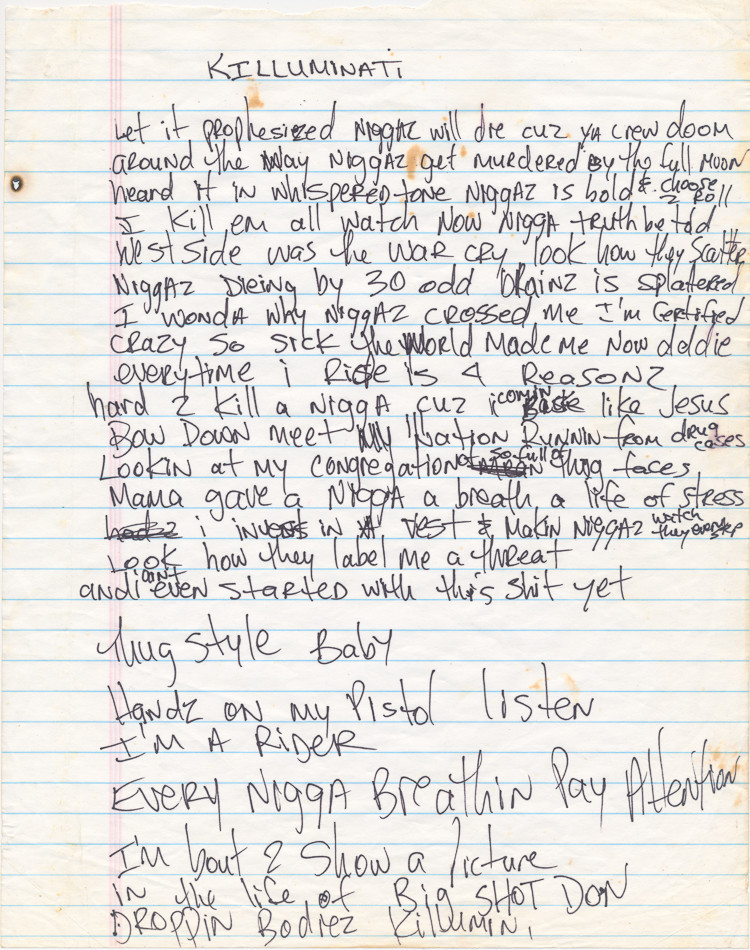 KILLUMINATI
Let it prophesized Niggaz will die cuz ya crew doom
around the way Niggaz get murdered by the full moon
heard it in whispered tone Niggaz is bold & choose 2 roll
I kill em all watch now Nigga truth be told
West side was the war cry look how they scatter
Niggaz Dieing by 30 odd Brainz is splatered
I wonda why Niggaz crossed me I'm certified
crazy so sick the world made me Now
everytime i Ride is 4 Reasonz
hard 2 kill a Nigga cuz i comin like Jesus
Bow Down meet my Nation Runnin from drug cases
Lookin at my congregation so full of thug faces
Mama gave a Nigga a breath a life of stress
i invest in A vest & Makin Niggaz watch they everystep
Look how they label me a threat
and i ain't even started with this shit yet
thug style Baby
Handz on my Pistol listen
I'm A Rider
Every Nigga Breathin Pay Attention
I'm bout 2 show a Picture
in the life of Big SHOT DON
DROPPIN Bodiez Killumin,